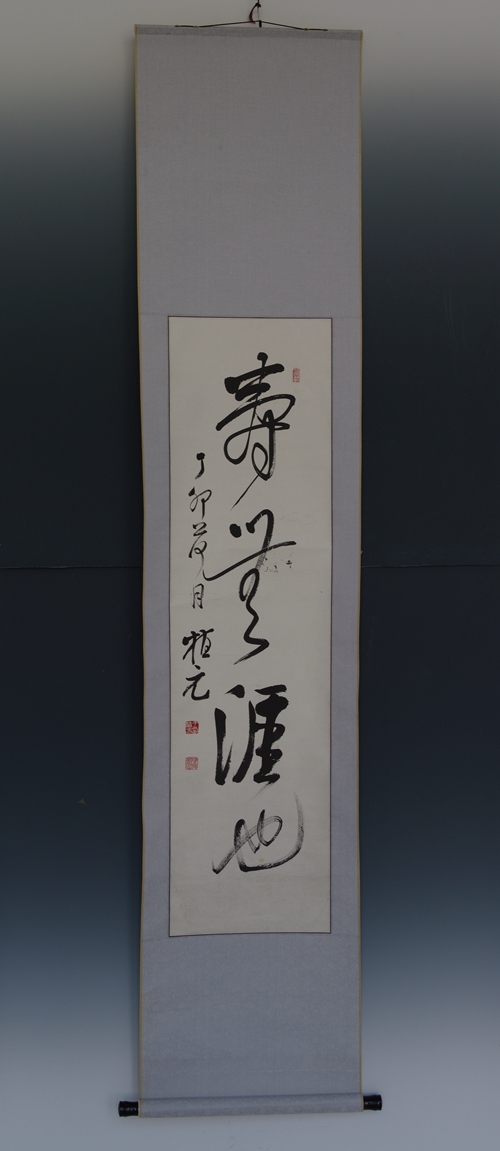 壽無涯也
丁卯荷月
植元